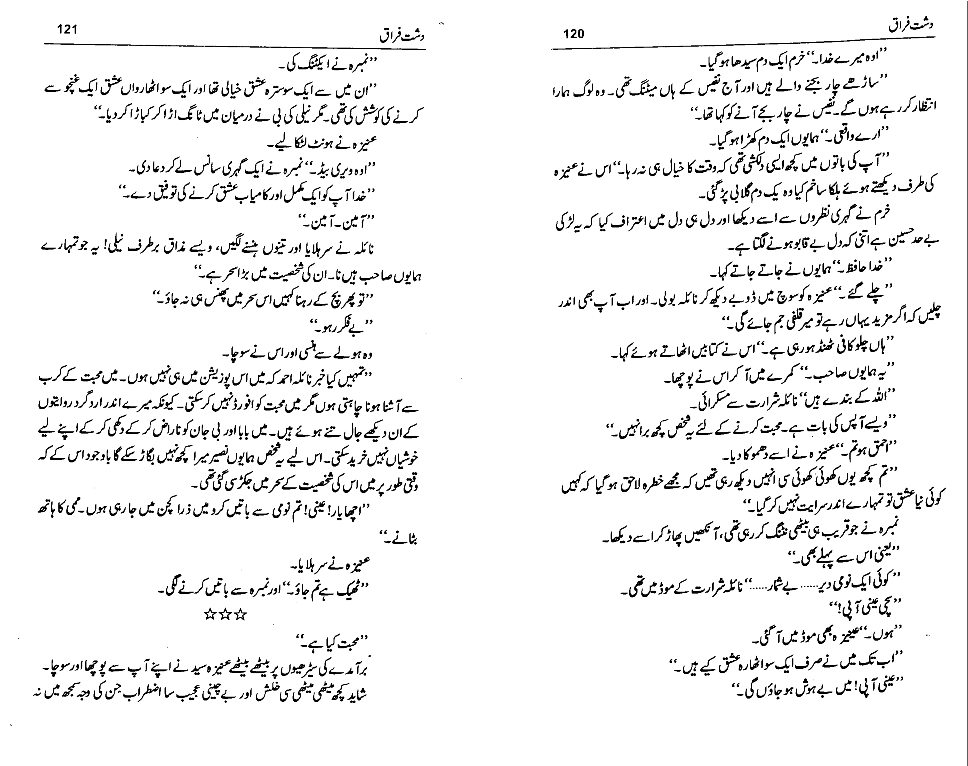 دشت فراق
120
’’اوہ میرے خدا۔‘‘ خرم ایک دم سیدھا ہو گیا۔
’’ساڑھے چار بجنے والے ہیں اور آج نفیس کے ہاں میٹنگ تھی۔ وہ لوگ ہمارا
انتظار کر رہے ہوں گے۔ نفیس نے چار بجے آنے کو کہا تھا۔‘‘
’’ارے واقعی۔‘‘ ہمایوں ایک دم کھڑا ہو گیا۔
’’آپ کی باتوں میں کچھ ایسی دلکشی تھی کہ وقت کا خیال ہی نہ رہا۔‘‘ اس نے عنیزہ
کی طرف دیکھتے ہوئے ہلکا سا خم کیا وہ یک دم گلابی پڑ گئی۔
خرم نے گہری نظروں سے اسے دیکھا اور دل ہی دل میں اعتراف کیا کہ یہ لڑکی
بے حد حسین ہے اتنی کہ دل بے قابو ہونے لگتا ہے۔
’’خدا حافظ۔‘‘ ہمایوں نے جاتے جاتے کہا۔
’’چلے گئے۔‘‘ عنیزہ کو سوچ میں ڈوبے دیکھ کر نائلہ بولی۔ اور اب آپ بھی اندر
چلیں کہ اگر مزید یہاں رہے تو میر قلفی جم جائے گی۔‘‘
’’ہاں چلو کافی ٹھنڈ ہو رہی ہے۔‘‘ اس نے کتابیں اٹھاتے ہوئے کہا۔
’’یہ ہمایوں صاحب۔‘‘ کمرے میں آ کر اس نے پوچھا۔
’’اللہ کے بندے ہیں‘‘ نائلہ شرارت سے مسکرائی۔
’’ویسے آپس کی بات ہے۔ محبت کرنے کے لئے یہ شخص کچھ برا نہیں۔‘‘
’’احمق ہو تم۔‘‘ عنیزہ نے اسے دھموکا دیا۔
’’تم کچھ یوں کھوئی کھوئی سی انہیں دیکھ رہی تھیں کہ مجھے خطرہ لاحق ہو گیا کہ کہیں
کوئی نیا عشق تو تمہارے اندر سرایت نہیں کر گیا۔‘‘
نمرہ نے جو قریب ہی بیٹھی نٹنگ کر رہی تھی، آنکھیں پھاڑ کر اسے دیکھا۔
’’یعنی اس سے پہلے بھی۔‘‘
’’کوئی ایک نومی دیر...... بے شمار......‘‘ نائلہ شرارت کے موڈ میں تھی۔
’’سچی عینی آپی!‘‘
’’ہوں۔‘‘ عنیزہ بھی موڈ میں آ گئی۔
’’اب تک میں نے صرف ایک سو اٹھارہ عشق کیے ہیں۔‘‘
’’عینی آپی! میں بے ہوش ہو جاؤں گی۔‘‘
دشت فراق
121
’’نمرہ نے ایکٹنگ کی۔
’’ان میں سے ایک سو سترہ عشق خیالی تھا اور ایک سو اٹھارواں عشق ایک غنچو سے
کرنے کی کوشش کی تھی۔ مگر نیلی کی بی نے درمیان میں ٹانگ اڑا کر کباڑا کر دیا۔‘‘
عنیزہ نے ہونٹ لٹکا لیے۔
’’اوہ ویری بیڈ۔‘‘ نمرہ نے ایک گہری سانس لے کر دعا دی۔
’’خدا آپ کو ایک مکمل اور کامیاب عشق کرنے کی توفیق دے۔‘‘
’’آمین۔ آمین۔‘‘
نائلہ نے سر ہلایا اور تینوں ہنسنے لگیں، ویسے مذاق برطرف نیلی! یہ جو تمہارے
ہمایوں صاحب ہیں نا۔ ان کی شخصیت میں بڑا سحر ہے۔‘‘
’’تو پھر بچ کے رہنا کہیں اس سحر میں پھنس ہی نہ جاؤ۔‘‘
’’بے فکر رہو۔‘‘
وہ ہولے سے ہنسی اور اس نے سوچا۔
’’تمہیں کیا خبر نائلہ احمد کہ میں اس پوزیشن میں ہی نہیں ہوں۔ میں محبت کے کرب
سے آشنا ہونا چاہتی ہوں مگر میں محبت کو افورڈ نہیں کر سکتی۔ کیونکہ میرے اندر اردگرد روایتوں
کے ان دیکھے جال تنے ہوئے ہیں۔ میں بابا اور بی جان کو ناراض کر کے دکھی کر کے اپنے لیے
خوشیاں نہیں خرید سکتی۔ اس لیے یہ شخص ہمایوں نصیر میرا کچھ نہیں بگاڑ سکے گا باوجود اس کے کہ
وقتی طور پر میں اس کی شخصیت کے سحر میں جکڑی گئی تھی۔
’’اچھا یار! عینی! تم نومی سے باتیں کرو میں ذرا کچن میں جا رہی ہوں۔ ممی کا ہاتھ
بٹانے۔‘‘
عنیزہ نے سر ہلایا۔
’’ٹھیک ہے تم جاؤ۔‘‘ اور نمرہ سے باتیں کرنے لگی۔
☆☆☆
’’محبت کیا ہے۔‘‘
برآمدے کی سیڑھیوں پر بیٹھے بیٹھے عنیزہ سید نے اپنے آپ سے پوچھا اور سوچا۔
شاید کچھ میٹھی میٹھی سی خلش اور بے چینی عجیب سا اضطراب جن کی وجہ سمجھ میں نہ